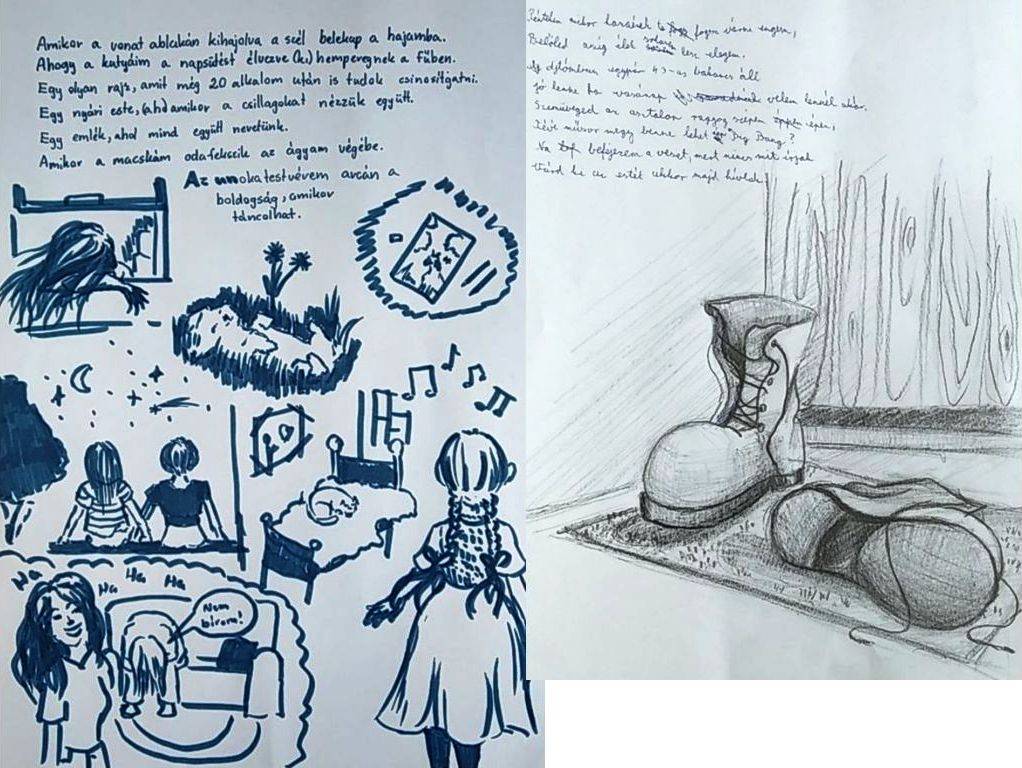 Amikor a vonat ablakán kihajolva a szél belekap a hajamba.
Ahogy a kutyáim a napsütést élvezve (ki) hemperegnek a fűben.
Egy olyan rajz, amit még 20 alkalom után is tudok csinosítgatni.
Egy nyári este, (ah) amikor a csillagokat nézzük együtt.
Egy emlék, ahol mind együtt nevetünk.
Amikor a macskám odafekszik az ágyam végébe.
Az unokatestvérem arcán a
boldogság, amikor
táncolhat.
Ha
Ha
Ha
Ha
Nem
bírom!
Pénteken mikor hazaérek te fogsz várni engem,
Belőled még élet lesz elegem.
egypár 43-as bakancs áll
Jó lenne ha vasárnap velem lennél
Szemüveged az asztalon ragyog szépen éppen,
Tévé műsor megy benne lehet Big Bang?
Na befejezem a verset, mert nincs mit írjak
Várd ki az estét akkor majd hívlak